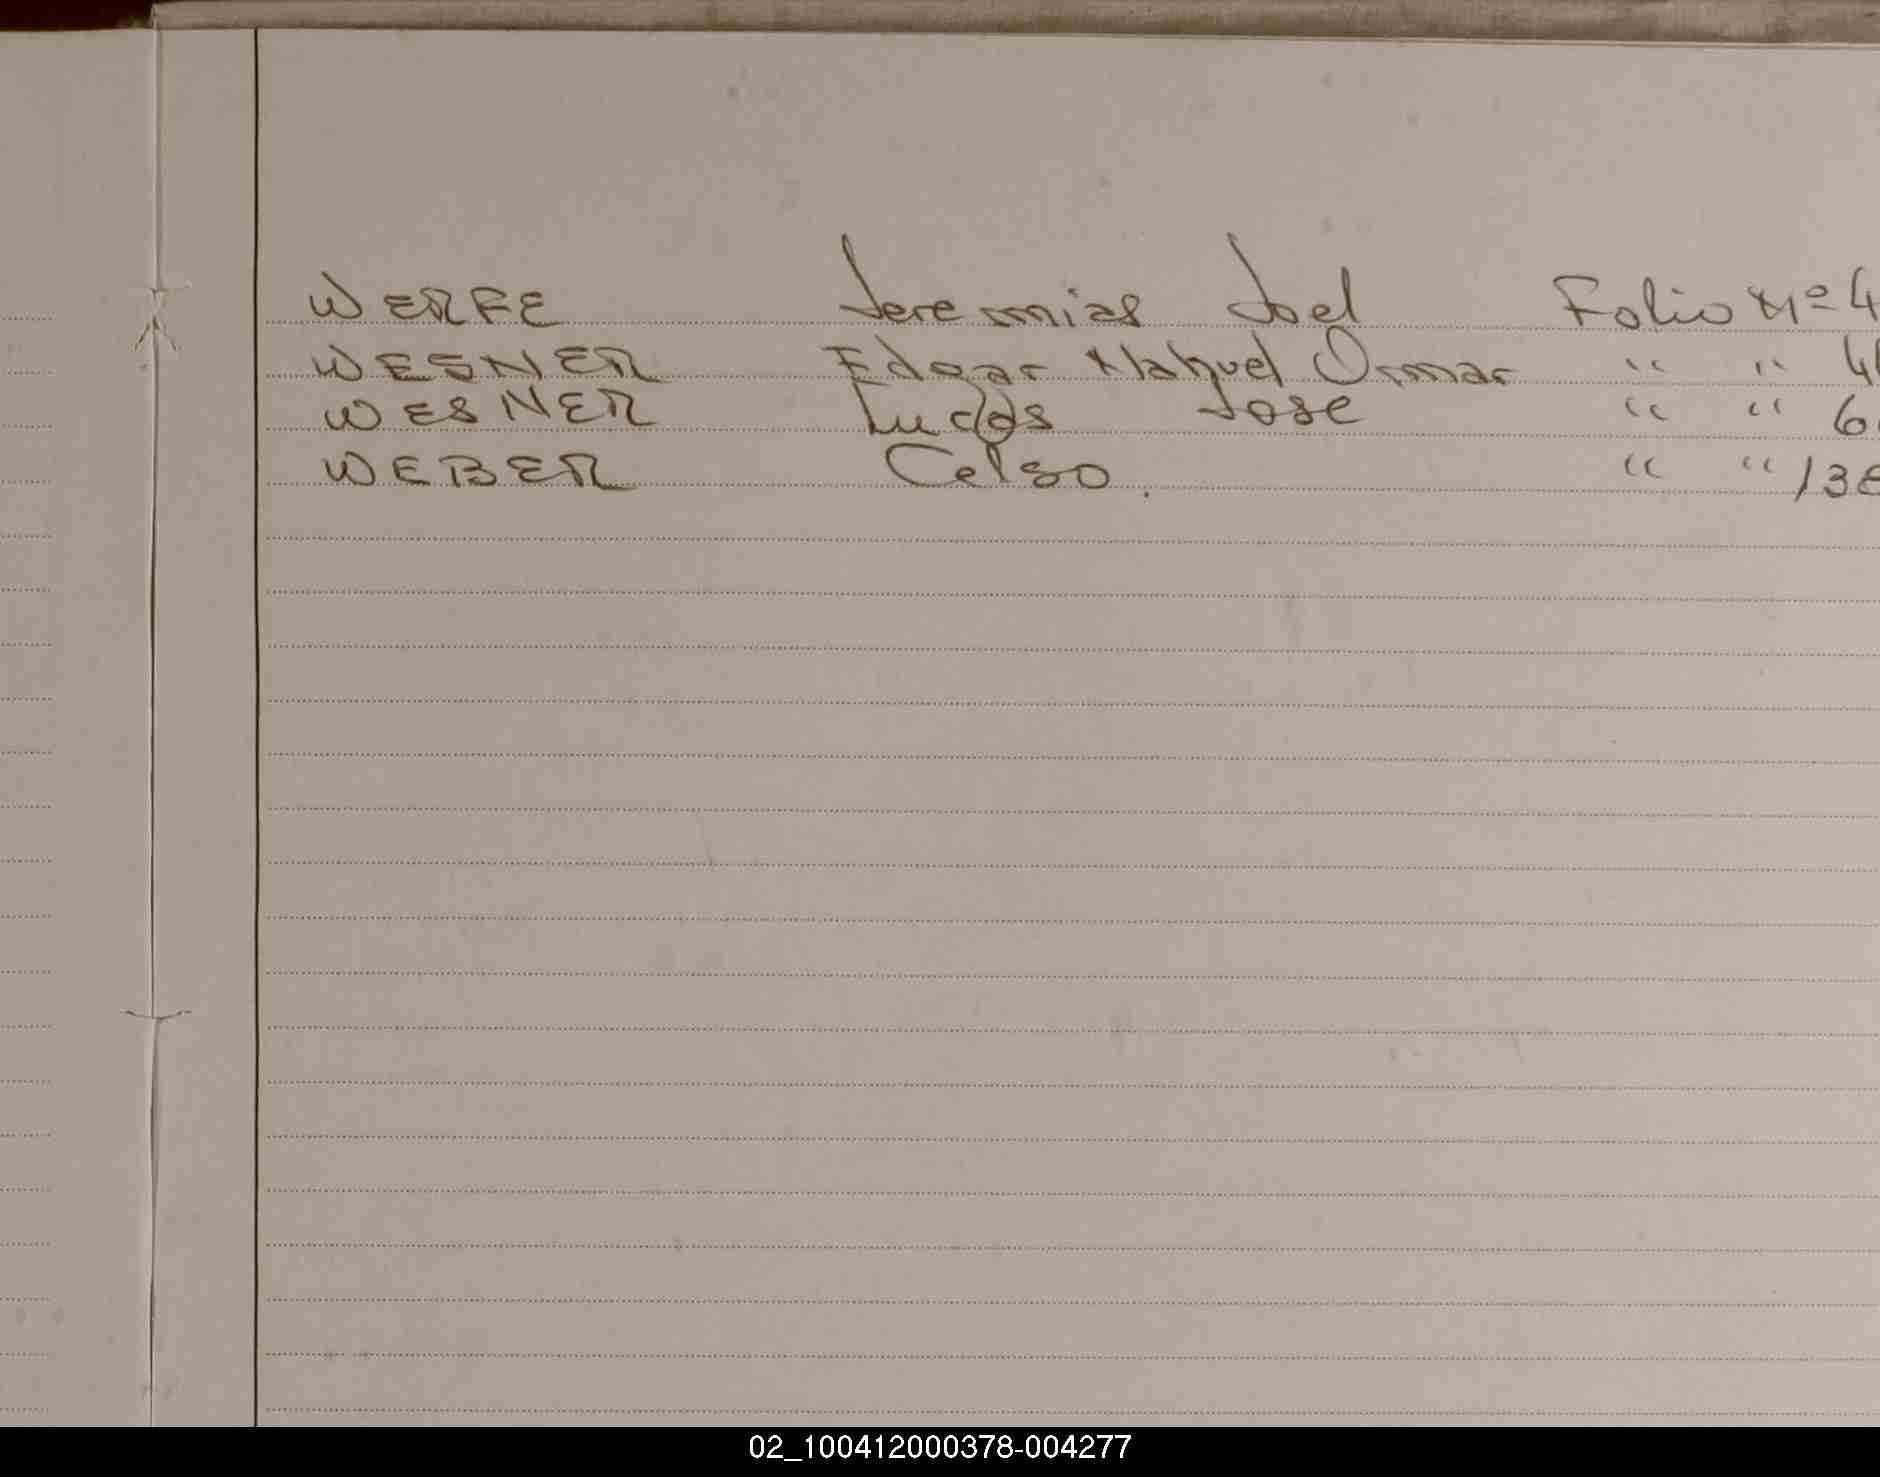 WERFE Jeremias Joel Folio Nº 4
WESNER Edgar Nahuel Ormar " " 4
WESNER Lucas Jose " " 6
WEBER Celso. " " 138
02_100412000378-004277